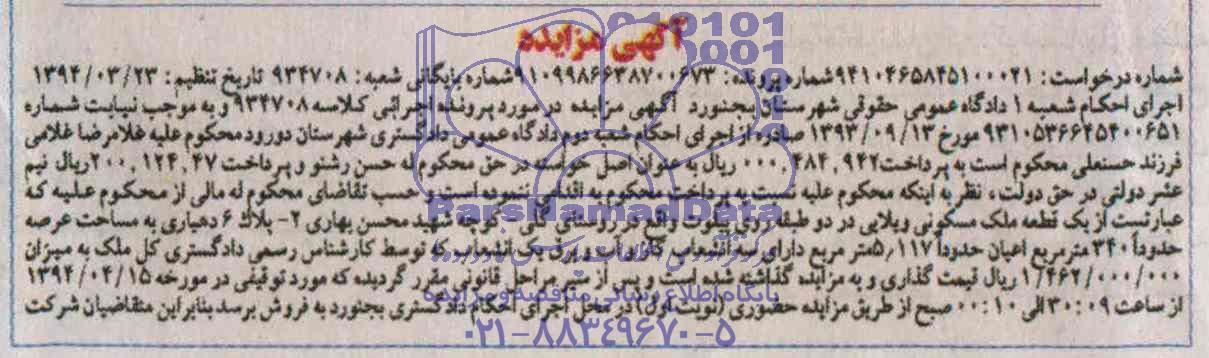 آگهی مزایده
شماره درخواست: ۹۴۱۰۴۶۵۸۴۵۱۰۰۰۲۱ شماره پرونده: ۹۱۰۹۹۸۶۶۳۸۷۰۰۶۷۳ شماره بایگانی شعبه: ۹۳۴۷۰۸ تاریخ تنظیم: ۱۳۹۴/۰۳/۲۳
اجرای احکام شعبه ۱ دادگاه عمومی حقوقی شهرستان بجنورد آگهی مزایده در مورد پرونده اجرائی کلاسه ۹۳۴۷۰۸ و به موجب نیابت شماره
۹۳۱۰۵۳۶۶۴۵۴۰۰۶۵۱ مورخ ۱۳۹۳/۰۹/۱۳ صادره از اجرای احکام شعبه دوم دادگاه عمومی دادگستری شهرستان دورود محکوم علیه غلامرضا غلامی
فرزند حسنعلی محکوم است به پرداخت ۹۴۲,۴۸۴,۰۰۰ ریال به عنوان اصل خواسته در حق محکوم له حسن رشنو و پرداخت ۴۷,۱۲۴,۲۰۰ ریال نیم
عشر دولتی در حق دولت، نظر به اینکه محکوم علیه نسبت به پرداخت محکوم به اقدامی ننموده است و حسب تقاضای محکوم له مالی از محکوم علیه که
عبارتست از یک قطعه ملک مسکونی ویلایی در دو طبقه واقع در روستای گلی - کوچه شهید محسن بهاری ۲- پلاک ۶ دهیاری به مساحت عرصه
حدوداً ۳۴۰ مترمربع اعیان حدوداً ۱۱۷٫۵ متر مربع دارای انشعاب که توسط کارشناس رسمی دادگستری کل ملک به میزان
۱/۴۶۲/۰۰۰/۰۰۰ ریال قیمت گذاری و به مزایده گذاشته شده است و پس از سیر مراحل قانونی مقرر گردیده که مورد توقیفی در مورخه ۱۳۹۴/۰۴/۱۵
از ساعت ۰۹:۳۰ الی ۱۰:۰۰ صبح از طریق مزایده حضوری (نوبت اول) در محل اجرای احکام دادگستری بجنورد به فروش برسد بنابراین متقاضیان شرکت
ParsNamadData
پایگاه اطلاع رسانی مناقصه و مزایده
۰۲۱-۸۸۳۴۹۶۷۰-۵